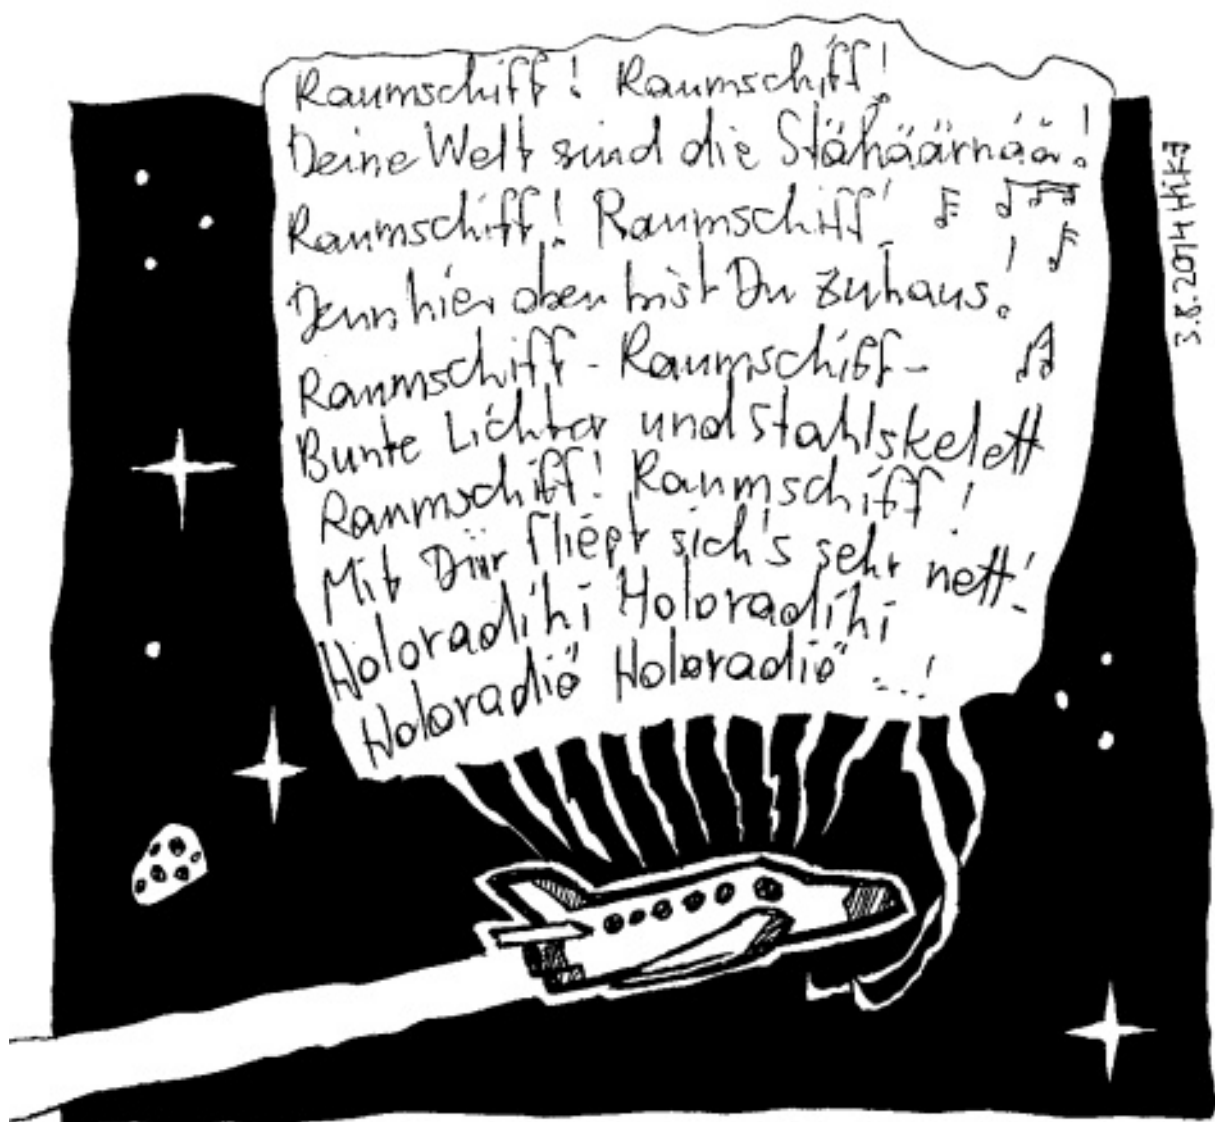 Raumschiff! Raumschiff!
Deine Welt sind die Stähäärnää!
Raumschiff! Raumschiff!
Denn hier oben bist Du zuhaus!
Raumschiff - Raumschiff -
Bunte Lichter und Stahlskelett
Raumschiff! Raumschiff!
Mit Diir fliegt sich's sehr nett!
Holoradihi Holoradihi
Holoradiö Holoradiö ...!
3.8.2014